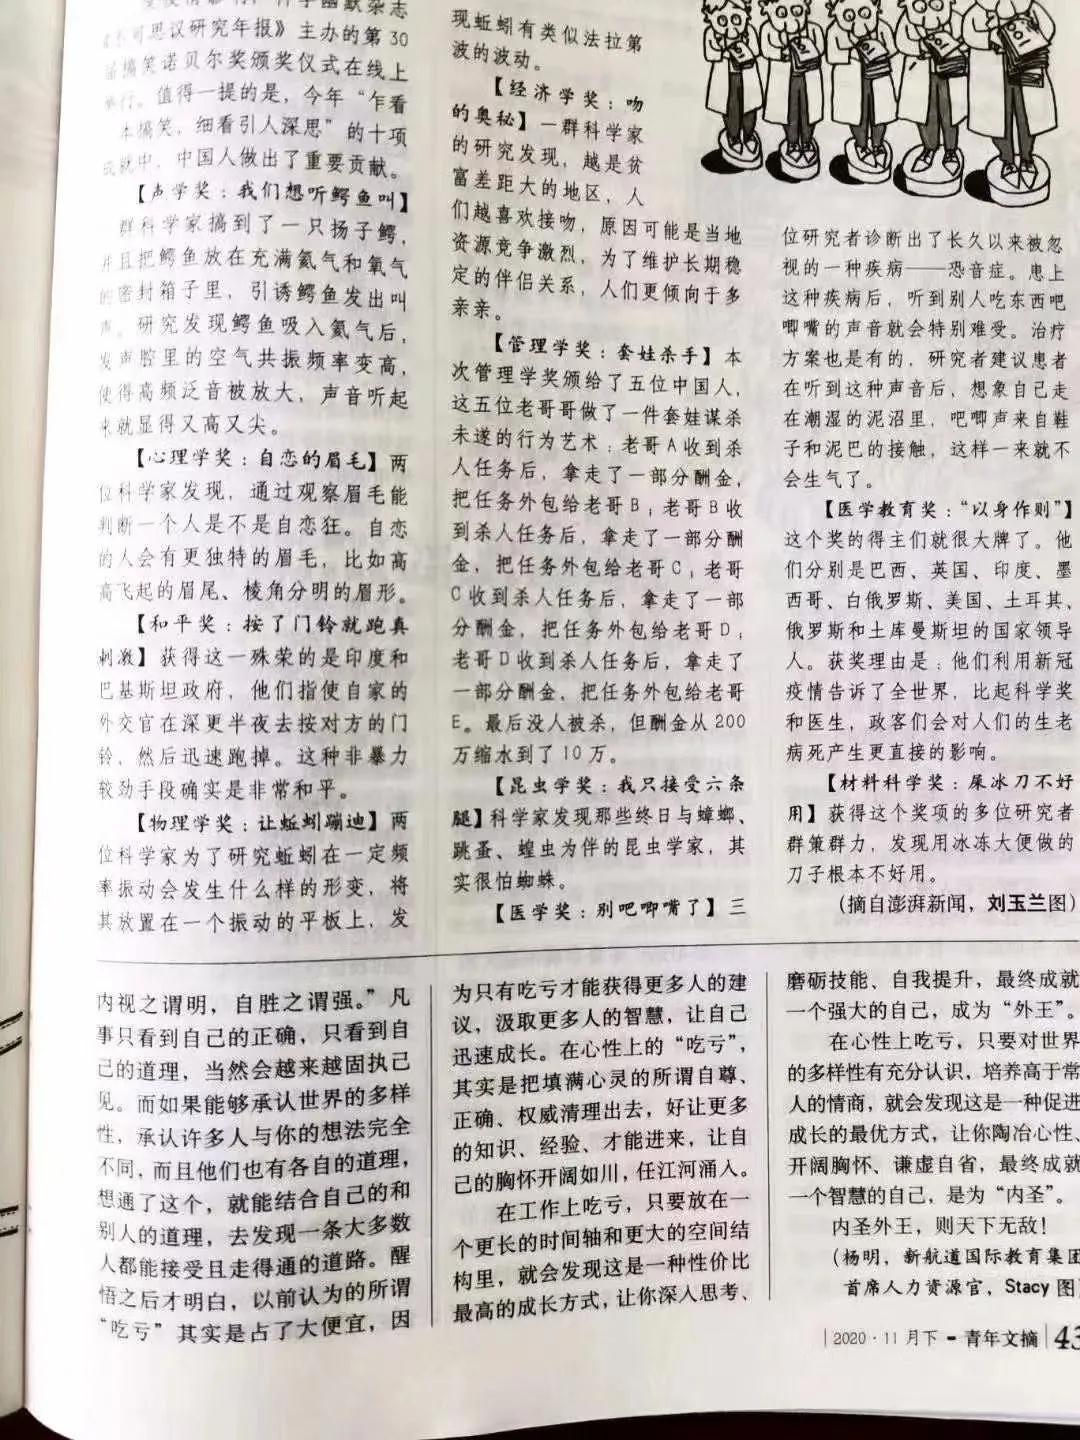 《不可思议研究年报》主办的第30
届搞笑诺贝尔奖颁奖仪式在线上
举行。值得一提的是，今年“乍看
本搞笑，细看引人深思”的十项
成就中，中国人做出了重要贡献。
【声学奖：我们想听鳄鱼叫】
群科学家搞到了一只扬子鳄，
并且把鳄鱼放在充满氦气和氧气
的密封箱子里，引诱鳄鱼发出叫
声。研究发现鳄鱼吸入氦气后，
发声腔里的空气共振频率变高，
使得高频泛音被放大，声音听起
来就显得又高又尖。
【心理学奖：自恋的眉毛】两
位科学家发现，通过观察眉毛能
判断一个人是不是自恋狂。自恋
的人会有更独特的眉毛，比如高
高飞起的眉尾、棱角分明的眉形。
【和平奖：按了门铃就跑真
刺激】获得这一殊荣的是印度和
巴基斯坦政府，他们指使自家的
外交官在深更半夜去按对方的门
铃，然后迅速跑掉。这种非暴力
较劲手段确实是非常和平。
【物理学奖：让蚯蚓蹦迪】两
位科学家为了研究蚯蚓在一定频
率振动会发生什么样的形变，将
其放置在一个振动的平板上，发
现蚯蚓有类似法拉第
波的波动。
【经济学奖：吻
的奥秘】一群科学家
的研究发现，越是贫
富差距大的地区，人
们越喜欢接吻，原因可能是当地
资源竞争激烈，为了维护长期稳
定的伴侣关系，人们更倾向于多
亲亲。
【管理学奖：套娃杀手】本
次管理学奖颁给了五位中国人，
这五位老哥哥做了一件套娃谋杀
未遂的行为艺术：老哥A收到杀
人任务后，拿走了一部分酬金，
把任务外包给老哥B；老哥B收
到杀人任务后，拿走了一部分酬
金，把任务外包给老哥C；老哥
C收到杀人任务后，拿走了一部
分酬金，把任务外包给老哥D；
老哥D收到杀人任务后，拿走了
一部分酬金，把任务外包给老哥
E。最后没人被杀，但酬金从200
万缩水到了10万。
【昆虫学奖：我只接受六条
腿】科学家发现那些终日与蟑螂、
跳蚤、蝗虫为伴的昆虫学家，其
实很怕蜘蛛。
【医学奖：别吧唧嘴了】三
位研究者诊断出了长久以来被忽
视的一种疾病——恐音症。患上
这种疾病后，听到别人吃东西吧
唧嘴的声音就会特别难受。治疗
方案也是有的，研究者建议患者
在听到这种声音后，想象自己走
在潮湿的泥沼里，吧唧声来自鞋
子和泥巴的接触，这样一来就不
会生气了。
【医学教育奖：“以身作则”】
这个奖的得主们就很大牌了。他
们分别是巴西、英国、印度、墨
西哥、白俄罗斯、美国、土耳其、
俄罗斯和土库曼斯坦的国家领导
人。获奖理由是：他们利用新冠
疫情告诉了全世界，比起科学家
和医生，政客们会对人们的生老
病死产生更直接的影响。
【材料科学奖：屎冰刀不好
用】获得这个奖项的多位研究者
群策群力，发现用冰冻大便做的
刀子根本不好用。
（摘自澎湃新闻，刘玉兰图）
内视之谓明，自胜之谓强。”凡
事只看到自己的正确，只看到自
己的道理，当然会越来越固执己
见。而如果能够承认世界的多样
性，承认许多人与你的想法完全
不同，而且他们也有各自的道理，
想通了这个，就能结合自己的和
别人的道理，去发现一条大多数
人都能接受且走得通的道路。醒
悟之后才明白，以前认为的所谓
“吃亏”其实是占了大便宜，因
为只有吃亏才能获得更多人的建
议，汲取更多人的智慧，让自己
迅速成长。在心性上的“吃亏”，
其实是把填满心灵的所谓自尊、
正确、权威清理出去，好让更多
的知识、经验、才能进来，让自
己的胸怀开阔如川，任江河涌入。
在工作上吃亏，只要放在一
个更长的时间轴和更大的空间结
构里，就会发现这是一种性价比
最高的成长方式，让你深入思考、
磨砺技能、自我提升，最终成就
一个强大的自己，成为“外王”。
在心性上吃亏，只要对世界
的多样性有充分认识，培养高于常
人的情商，就会发现这是一种促进
成长的最优方式，让你陶冶心性、
开阔胸怀、谦虚自省，最终成就
一个智慧的自己，是为“内圣”。
内圣外王，则天下无敌！
（杨明，新航道国际教育集团
首席人力资源官，Stacy图）
2020·11月下-青年文摘 43